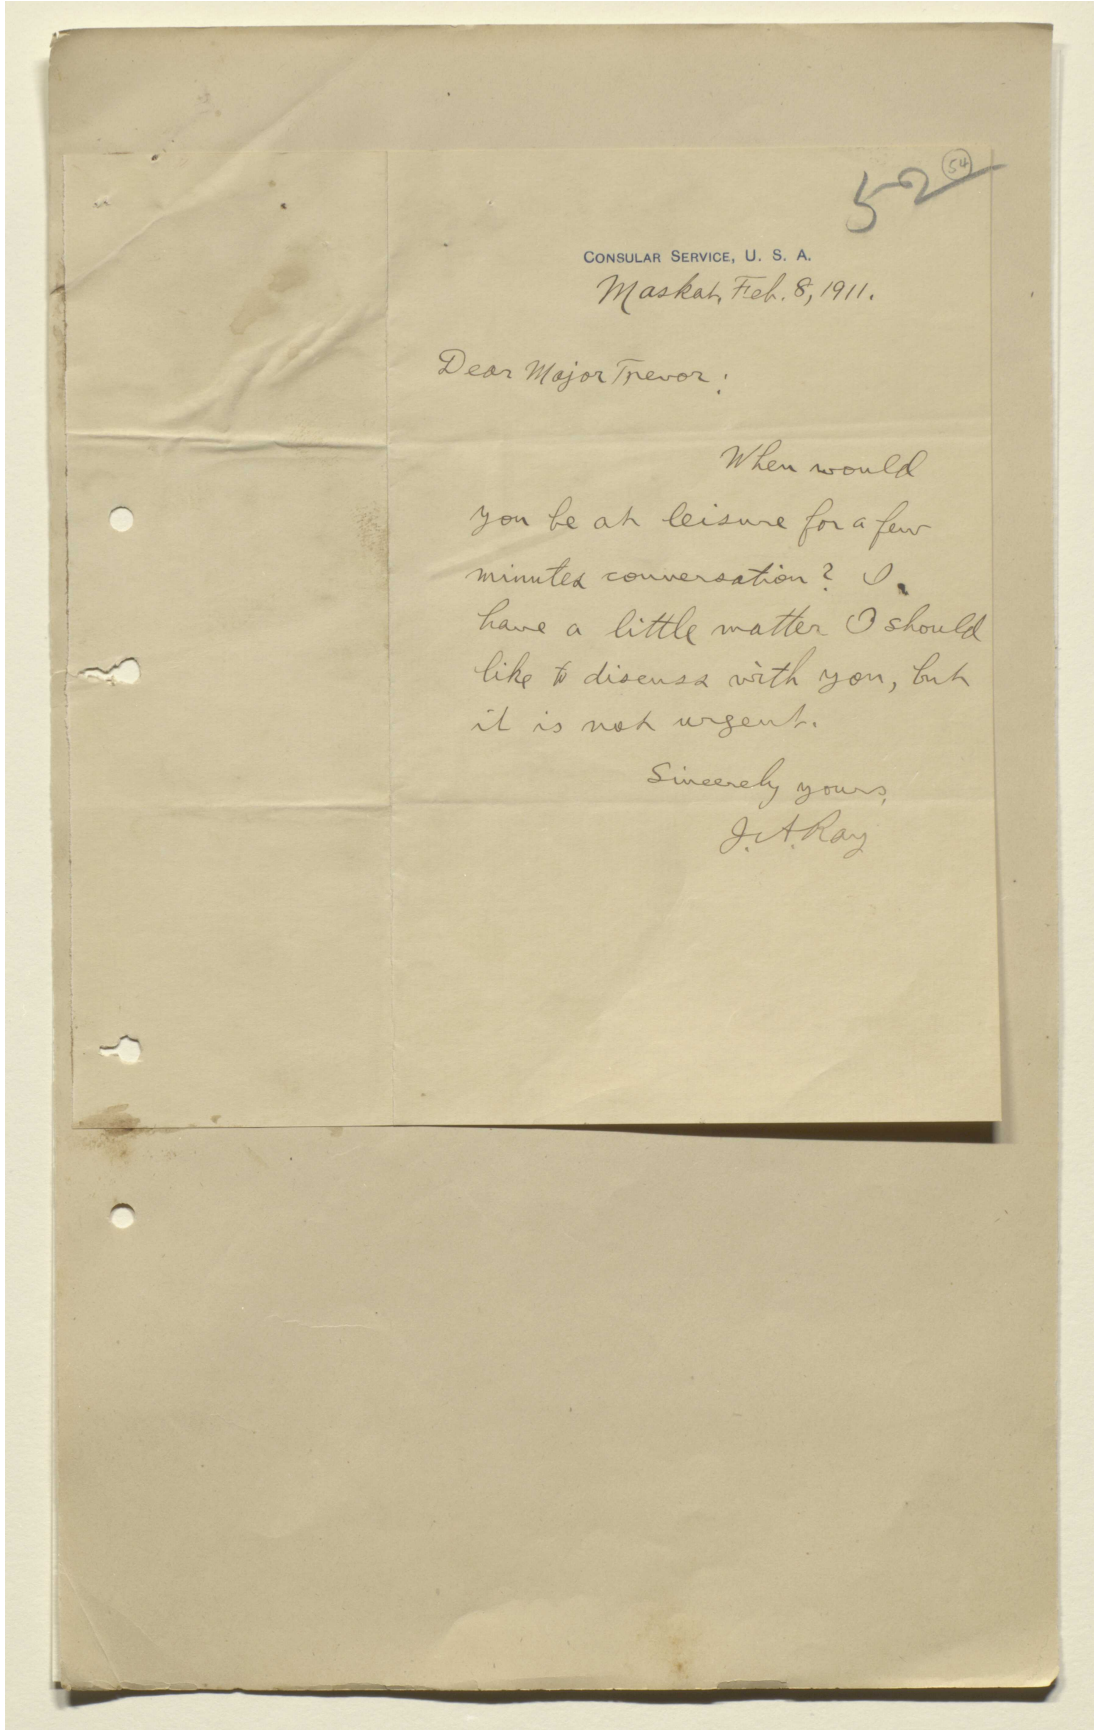 54
52
CONSULAR SERVICE, U. S. A.
Maskat, Feb. 8, 1911.
Dear Major Trevor:
When would
you be at leisure for a few
minutes conversation? I
have a little matter I should
like to discuss with you, but
it is not urgent.
Sincerely yours,
J. A. Ray